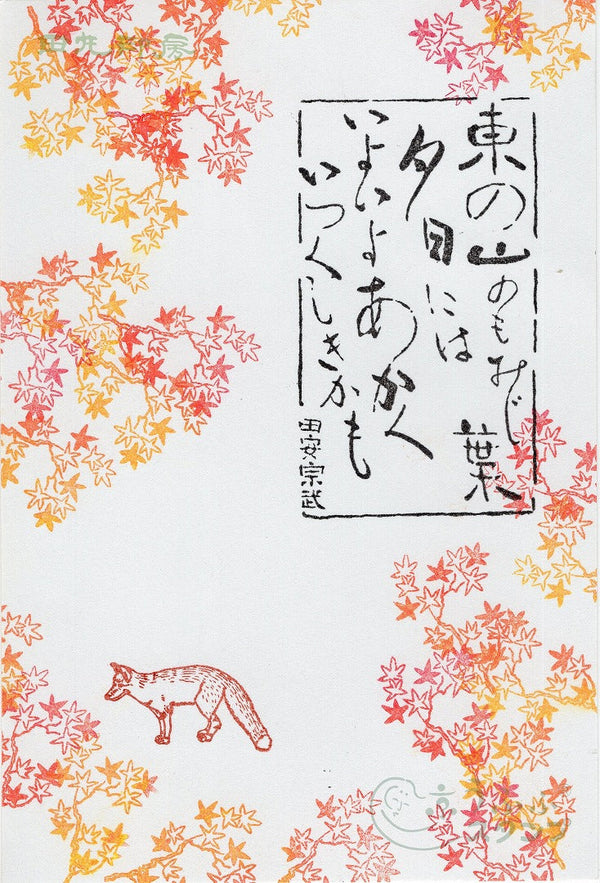 東の山のもみじ葉
夕日には
いよいよあかく
いつくしきかも
田安宗武
田丸印房